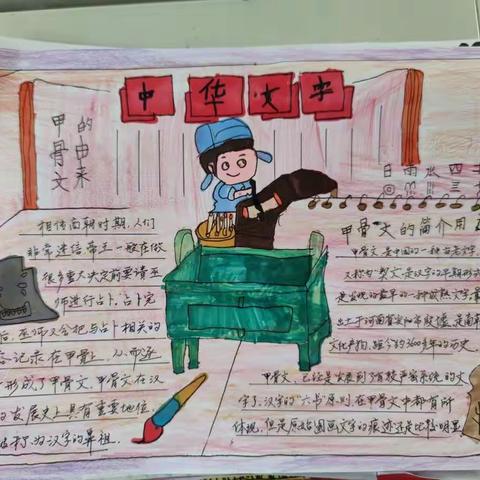 中华文字
甲骨文
的由来
日雨水四
三
相传商朝时期,人们
非常迷信,帝王一般在做
很多重大决定前要请巫
师进行占卜,占卜完
后,巫师又会把与占卜相关的
记录在甲骨上,从而逐
形成了甲骨文,甲骨文在汉
的发展史上具有重要地位,
为汉字的鼻祖.
甲骨文的简介用
甲骨文是中国的一种古老文字
又称为"契文",是汉字的早期形式
是发现的最早的一种成熟文字,最
出土于河南省安阳市殷墟,是商朝
文化产物,距今约3600多年的历史.
甲骨文,已经是发展到了有较严密系统的文
字了,汉字的"六书"原则,在甲骨文中都有所
体现,但是原始图画文字的痕迹还是比较明显